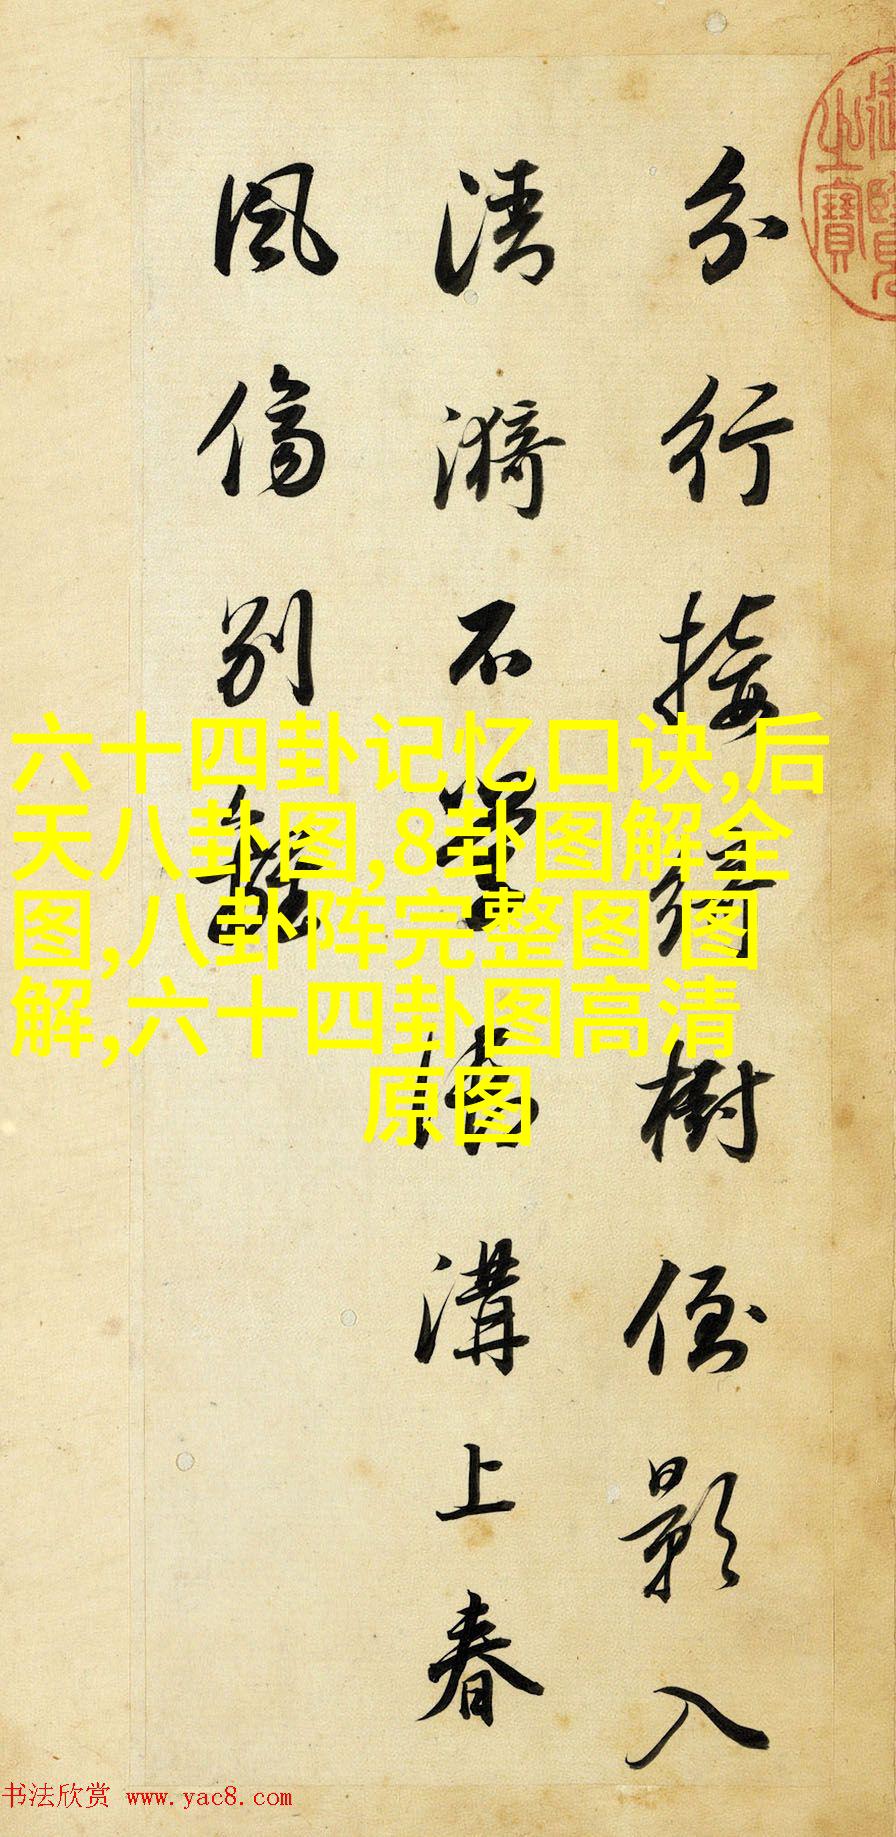 分行接绮樹倒影入
清漪不學御溝上春
風傷別離
六十四卦记忆口诀,后
天八卦图,8卦图解全
图,八卦阵完整图图
解,六十四卦图高清
原图
之寶
书法欣赏 www.yac8.com